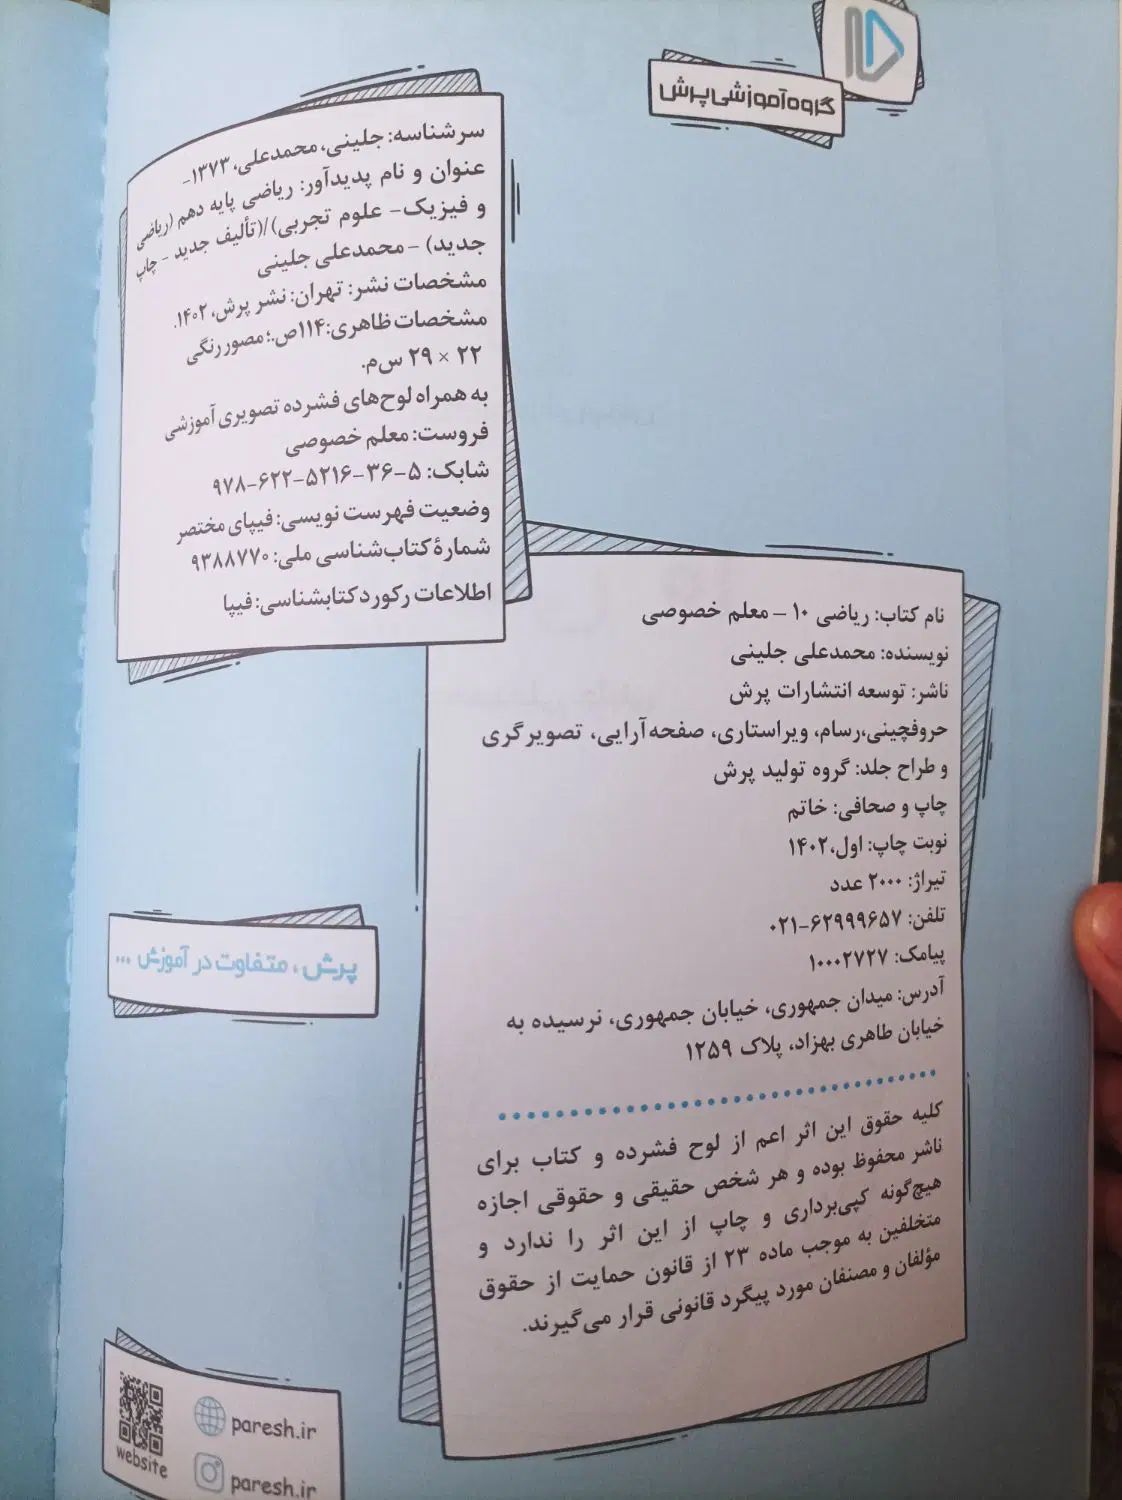 گروه آموزشی پرش
سرشناسه: جلینی، محمدعلی، ۱۳۷۳-
عنوان و نام پدیدآور: ریاضی پایه دهم (ریاضی
و فیزیک- علوم تجربی)/(تألیف جدید - چاپ
جدید) - محمدعلی جلینی
مشخصات نشر: تهران: نشر پرش، ۱۴۰۲.
مشخصات ظاهری: ۱۱۴ص.؛ مصور رنگی
۲۲ × ۲۹ س‌م.
به همراه لوح‌های فشرده تصویری آموزشی
فروست: معلم خصوصی
شابک: ۵-۳۶-۵۲۱۶-۶۲۲-۹۷۸
وضعیت فهرست نویسی: فیپای مختصر
شمارهٔ کتاب‌شناسی ملی: ۹۳۸۸۷۷۰
اطلاعات رکورد کتابشناسی: فیپا
نام کتاب: ریاضی ۱۰ - معلم خصوصی
نویسنده: محمدعلی جلینی
ناشر: توسعه انتشارات پرش
حروفچینی،رسام، ویراستاری، صفحه‌آرایی، تصویرگری
و طراح جلد: گروه تولید پرش
چاپ و صحافی: خاتم
نوبت چاپ: اول،۱۴۰۲
تیراژ: ۲۰۰۰ عدد
تلفن: ۶۲۹۹۹۶۵۷-۰۲۱
پیامک: ۱۰۰۰۲۷۲۷
آدرس: میدان جمهوری، خیابان جمهوری، نرسیده به
خیابان طاهری بهزاد، پلاک ۱۲۵۹
کلیه حقوق این اثر اعم از لوح فشرده و کتاب برای
ناشر محفوظ بوده و هر شخص حقیقی و حقوقی اجازه
هیچ‌گونه کپی‌برداری و چاپ از این اثر را ندارد و
متخلفین به موجب ماده ۲۳ از قانون حمایت از حقوق
مؤلفان و مصنفان مورد پیگرد قانونی قرار می‌گیرند.
پرش، متفاوت در آموزش ...
paresh.ir
website
paresh.ir